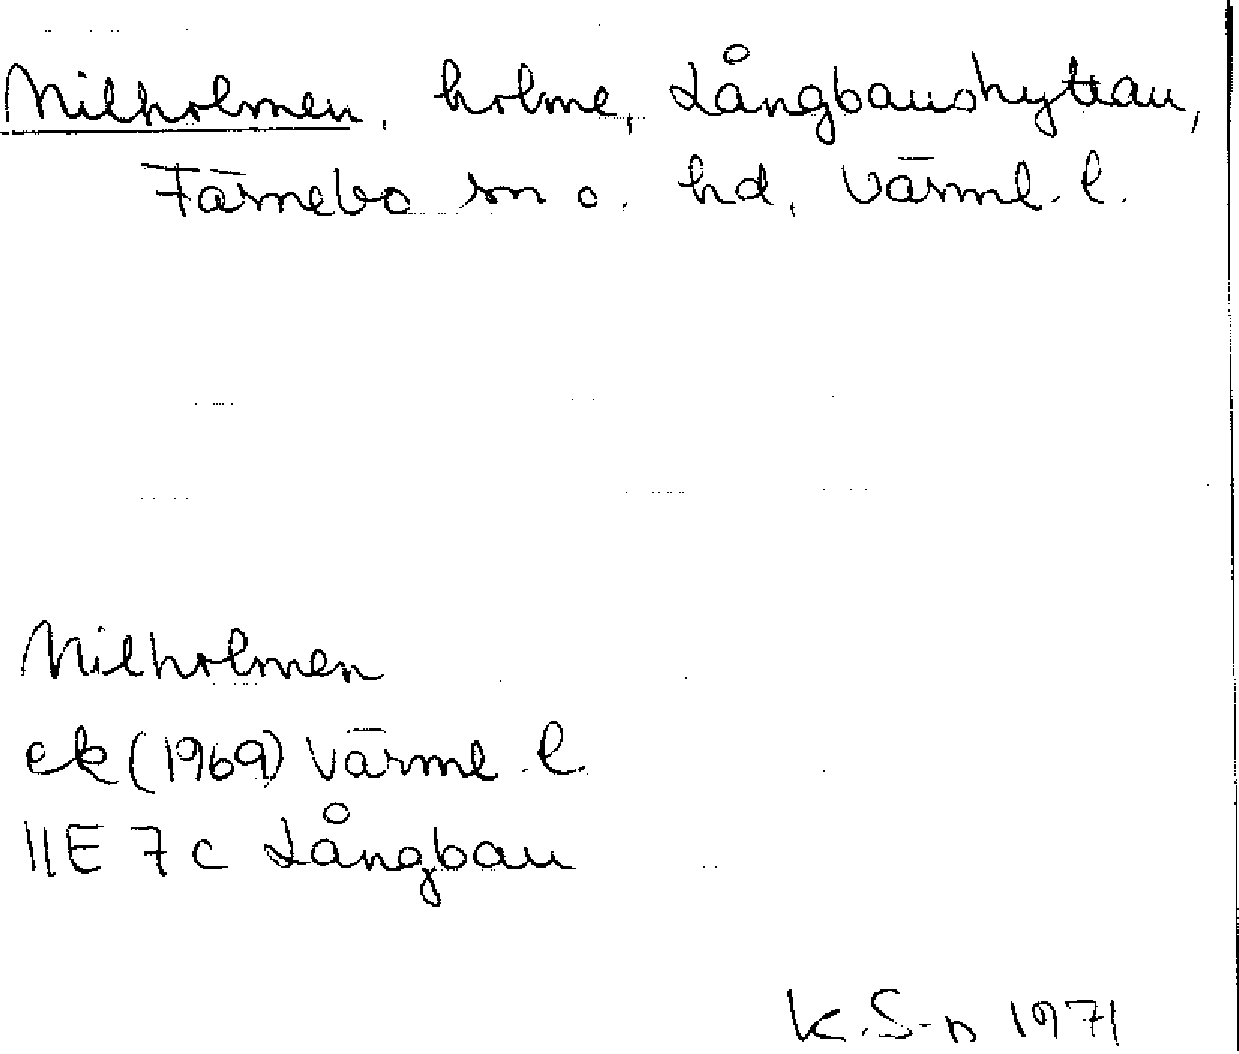 Milholmen, holme, Långbanshyttan,
Färnebo sn o. hd, Värml. l.
Milholmen
ek (1969) Värml. l.
11E 7c Långban
K. S-n 1971